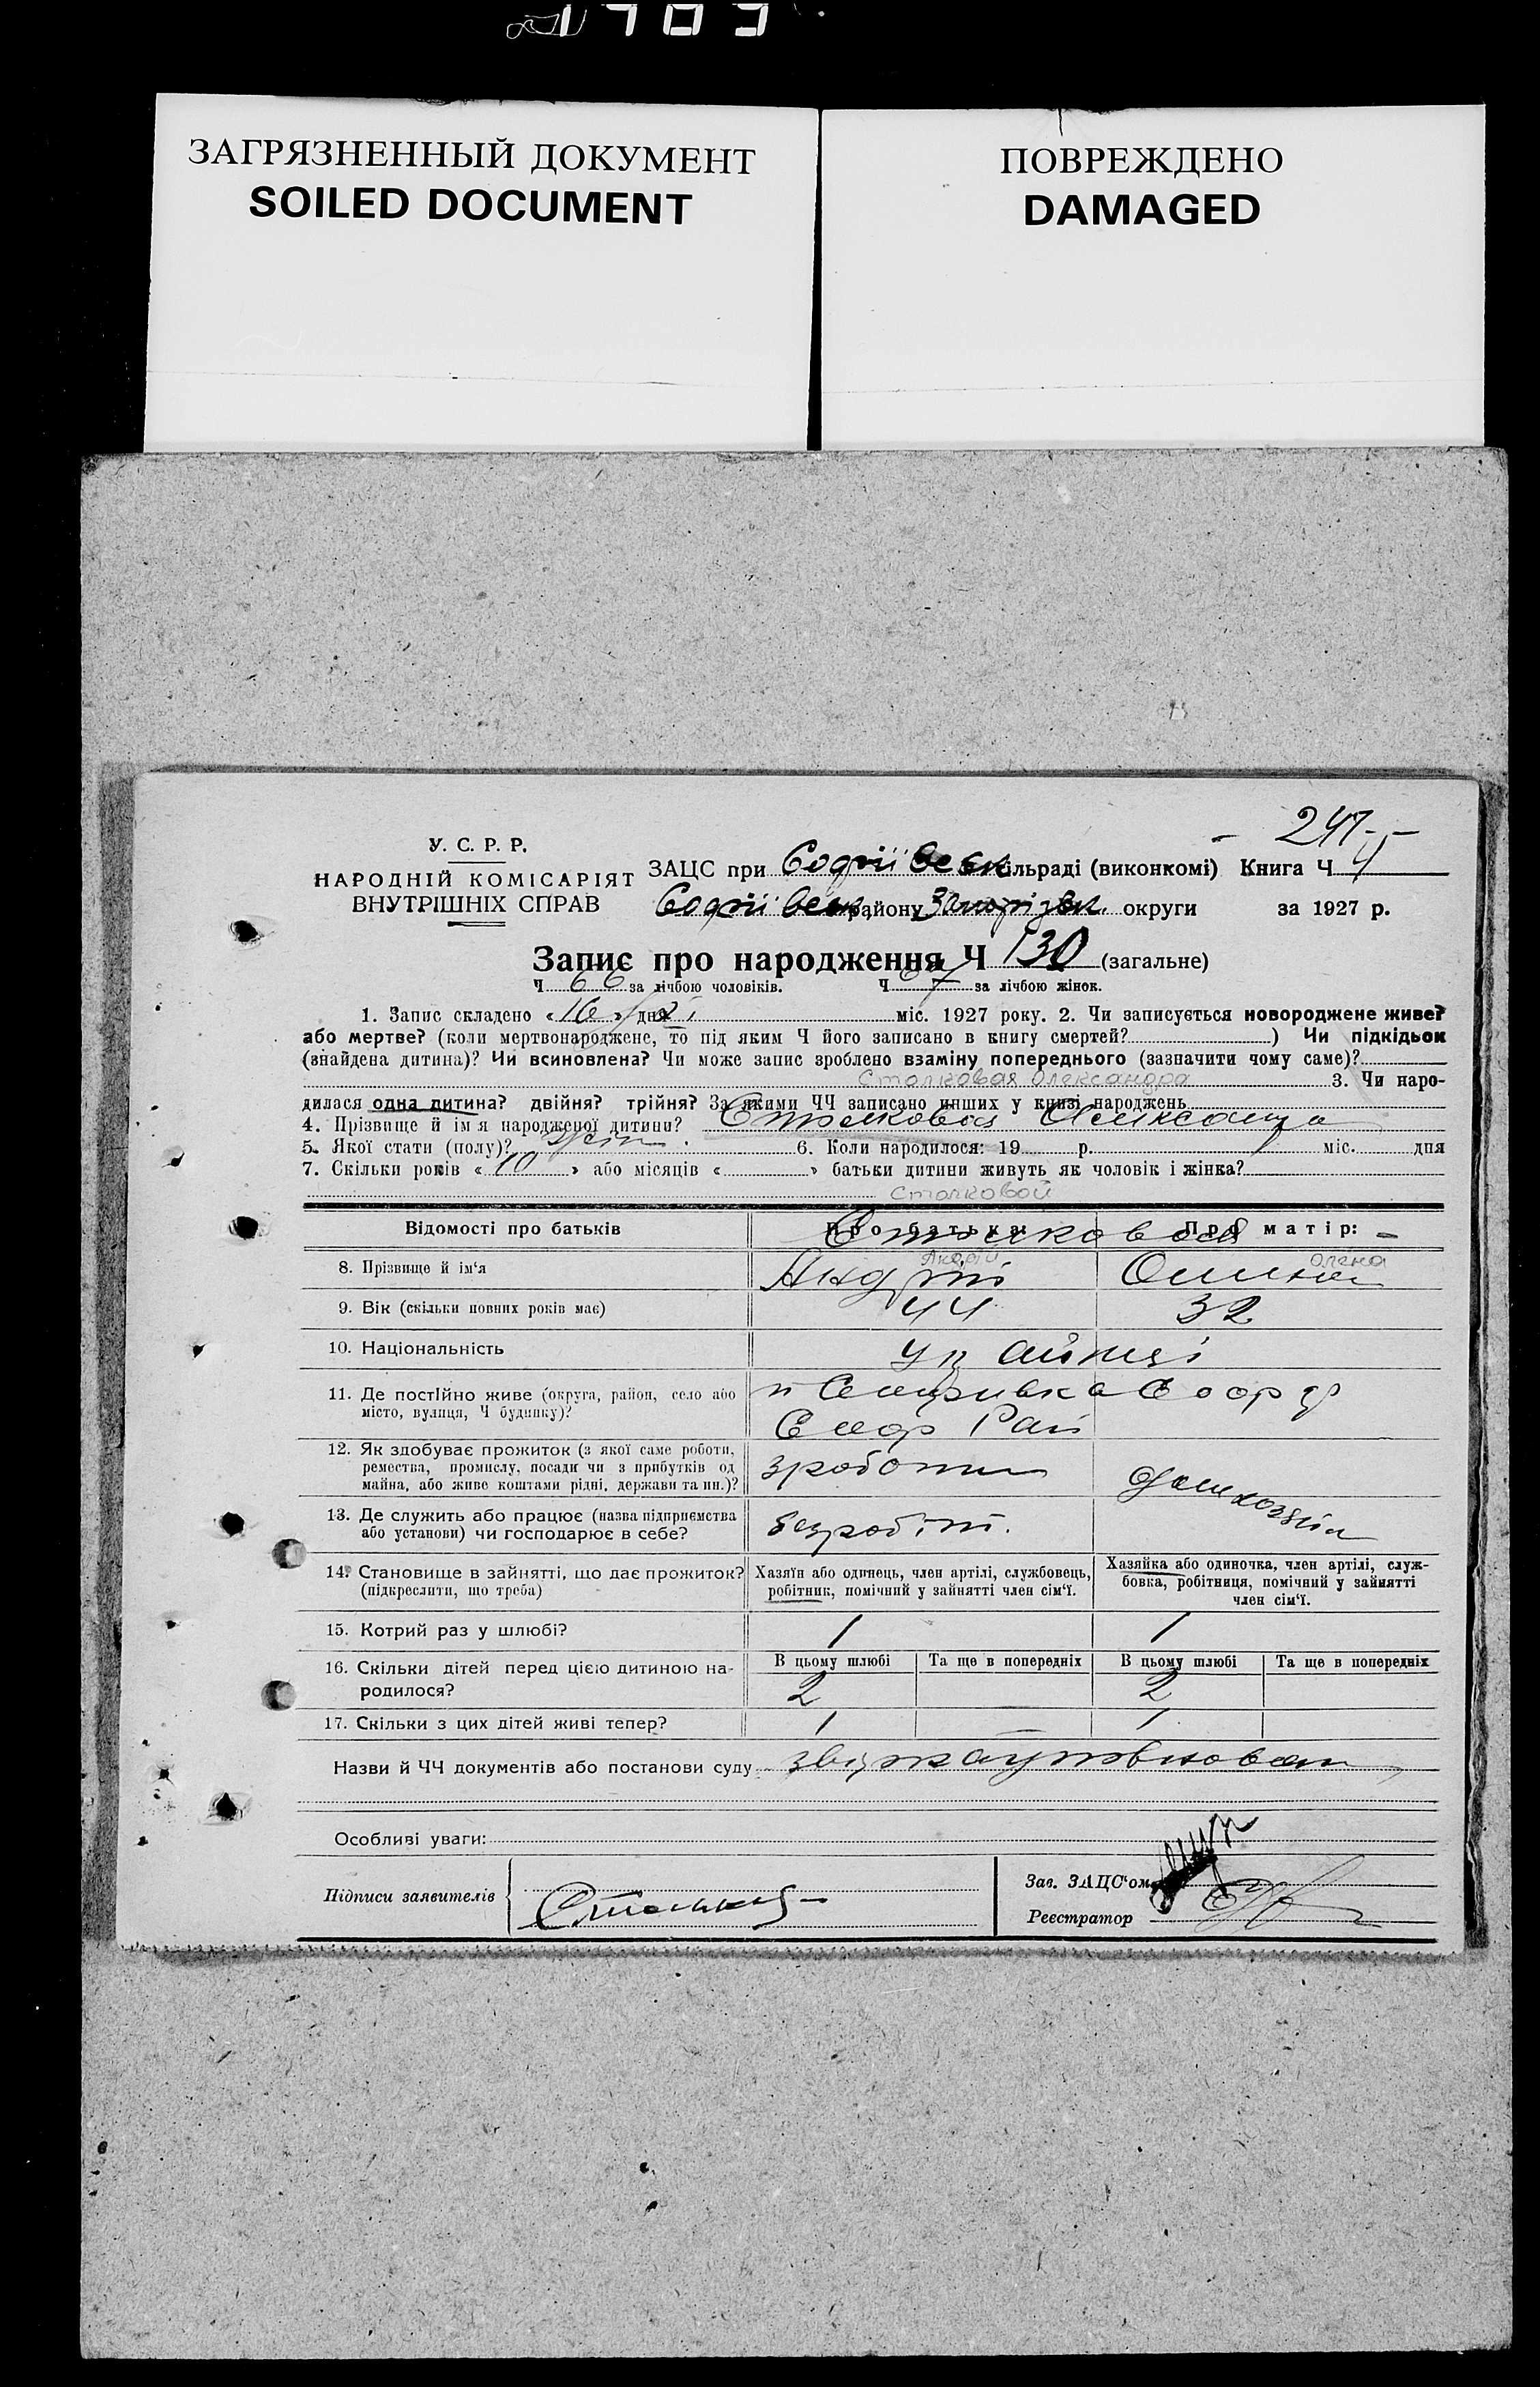 ЗАГРЯЗНЕННЫЙ ДОКУМЕНТ
SOILED DOCUMENT
ПОВРЕЖДЕНО
DAMAGED
247
У. С. Р. Р.
НАРОДНІЙ КОМІСАРІЯТ
ВНУТРІШНІХ СПРАВ
ЗАЦС при Софіївськ сільраді (виконкомі) Книга Ч 4
Софіївськ району Запорізьк. округи за 1927 р.
Запис про народження Ч 130 (загальне)
Ч 66 за лічбою чоловіків. Ч 67 за лічбою жінок.
1. Запис складено «16» дня міс. 1927 року. 2. Чи записується новороджене живе?
або мертве? (коли мертвонароджене, то під яким Ч його записано в книгу смертей? ) Чи підкідьок
(знайдена дитина)? Чи всиновлена? Чи може запис зроблено взаміну попереднього (зазначити чому саме)?
Столковая Олександра 3. Чи наро-
дилася одна дитина? двійня? трійня? За якими ЧЧ записано инших у книзі народжень
4. Прізвище й ім'я народженої дитини? Столковая Олександра
5. Якої стати (полу)? жін. 6. Коли народилося: 19 р. міс. дня
7. Скільки років «10» або місяців « » батьки дитини живуть як чоловік і жінка?
Столковой
Відомості про батьків Про батька: Про матір:
8. Прізвище й ім'я Андрій Андрій Олена Олена
9. Вік (скільки повних років має) 44 32
10. Національність українці
11. Де постійно живе (округа, район, село або
місто, вулиця, Ч будинку)?
12. Як здобуває прожиток (з якої саме роботи,
ремества, промислу, посади чи з прибутків од
майна, або живе коштами рідні, держави та ин.)? зроботи
13. Де служить або працює (назва підприємства
або установи) чи господарює в себе? безробітн.
14. Становище в зайнятті, що дає прожиток?
(підкреслити, що треба)
Хазяїн або одинець, член артілі, службовець,
робітник, помічний у зайнятті член сім'ї.
Хазяйка або одиночка, член артілі, служ-
бовка, робітниця, помічний у зайнятті
член сім'ї.
15. Котрий раз у шлюбі? 1 1
16. Скільки дітей перед цією дитиною на-
родилося?
В цьому шлюбі Та ще в попередніх В цьому шлюбі Та ще в попередніх
2 2
17. Скільки з цих дітей живі тепер? 1 1
Назви й ЧЧ документів або постанови суду
Особливі уваги:
Підписи заявителів
Зав. ЗАЦС'ом
Реєстратор